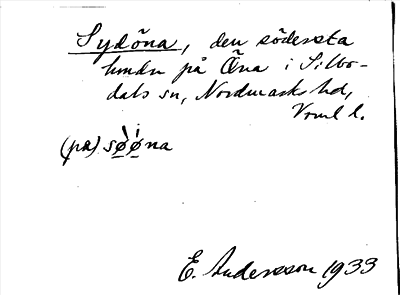 Sydöna, den södersta
hmdn på Öna i Silbo-
dals sn, Nordmarks hd,
Vrml l.
(pa) sø̀ø̇na
E. Andersson 1933